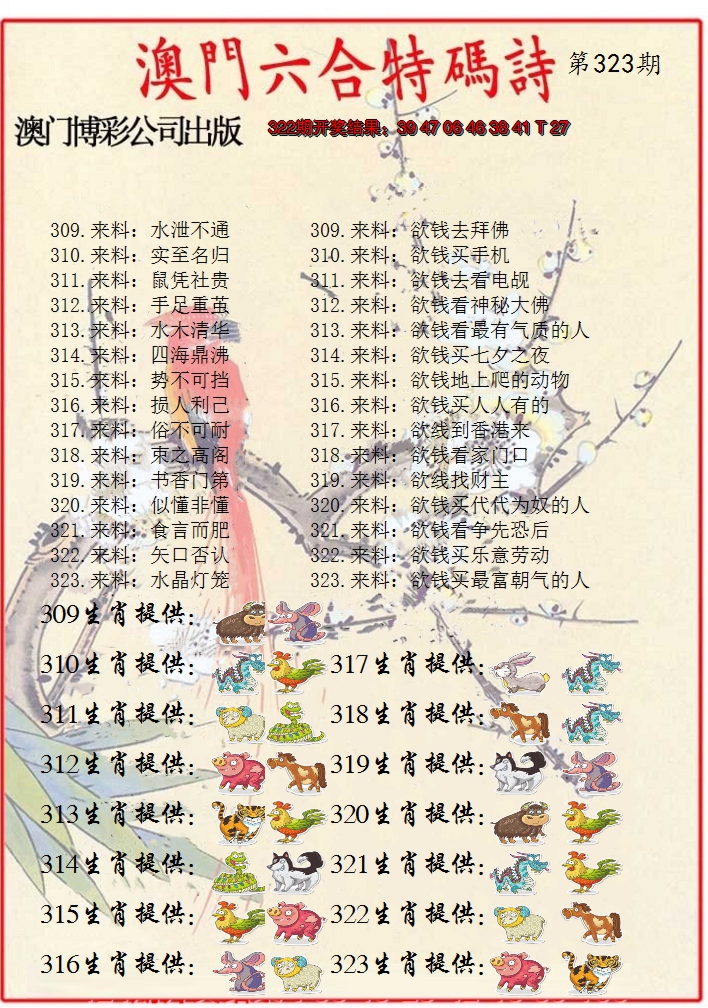 澳門六合特碼詩 第323期
澳门博彩公司出版 322期开奖结果：39 47 06 46 38 41 T 27
309.来料：水泄不通 309.来料：欲钱去拜佛
310.来料：实至名归 310.来料：欲钱买手机
311.来料：鼠凭社贵 311.来料：欲钱去看电觇
312.来料：手足重茧 312.来料：欲钱看神秘大佛
313.来料：水木清华 313.来料：欲钱看最有气质的人
314.来料：四海鼎沸 314.来料：欲钱买七夕之夜
315.来料：势不可挡 315.来料：欲钱地上爬的动物
316.来料：损人利己 316.来料：欲钱买人人有的
317.来料：俗不可耐 317.来料：欲线到香港来
318.来料：束之高阁 318.来料：欲钱看家门口
319.来料：书香门第 319.来料：欲线找财主
320.来料：似懂非懂 320.来料：欲钱买代代为奴的人
321.来料：食言而肥 321.来料：欲钱看争先恐后
322.来料：矢口否认 322.来料：欲钱买乐意劳动
323.来料：水晶灯笼 323.来料：欲钱买最富朝气的人
309生肖提供：
310生肖提供： 317生肖提供：
311生肖提供： 318生肖提供：
312生肖提供： 319生肖提供：
313生肖提供： 320生肖提供：
314生肖提供： 321生肖提供：
315生肖提供： 322生肖提供：
316生肖提供： 323生肖提供：